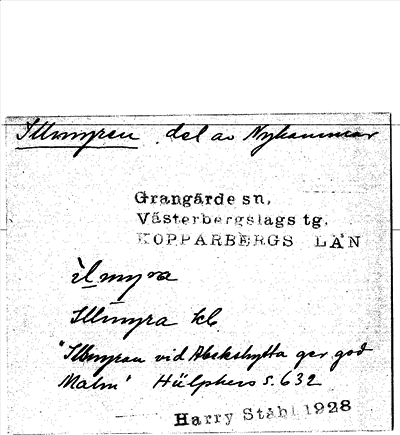 Illmyren del av Nyhammar
Grangärde sn,
Västerbergslags tg.
KOPPARBERGS LÄN
ìlmyra
Illmyra kb
"Illmyran vid Abekshytta ger god
Malm" Hülphers s. 632
Harry Ståhl 1928